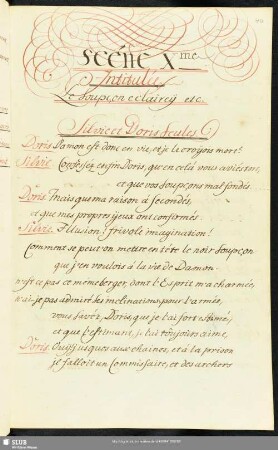 Scéne X.me
Intitulée
Le soupçon eclaircy etc
Silvie et Doris seules
Doris. Damon est donc en vie, et je le croyois mort!
Silvie. Confessez enfin Doris, qu'en cela vous aviés tort,
et que vos soupçons mal fondés.
Doris. Mais que ma raison a secondés,
et que mes propres yeux ont confirmés.
Silvie. Illusion! frivole imagination!
Comment se peut on mettre en tête le noir soupçon
que j'en voulois à la vie de Damon.
n'est ce pas ce même berger, dont l'Esprit m'a charmée,
n'ai-je pas admiré ses inclinations pour l'armée,
vous savés, Doris, que je l'ai fort estimé,
et que l'estimant, je l'ai toujours aimé.
Doris. Ouy jusques aux chaines, et à la prison
je falloit un Commissaire, et des archers
SLUB